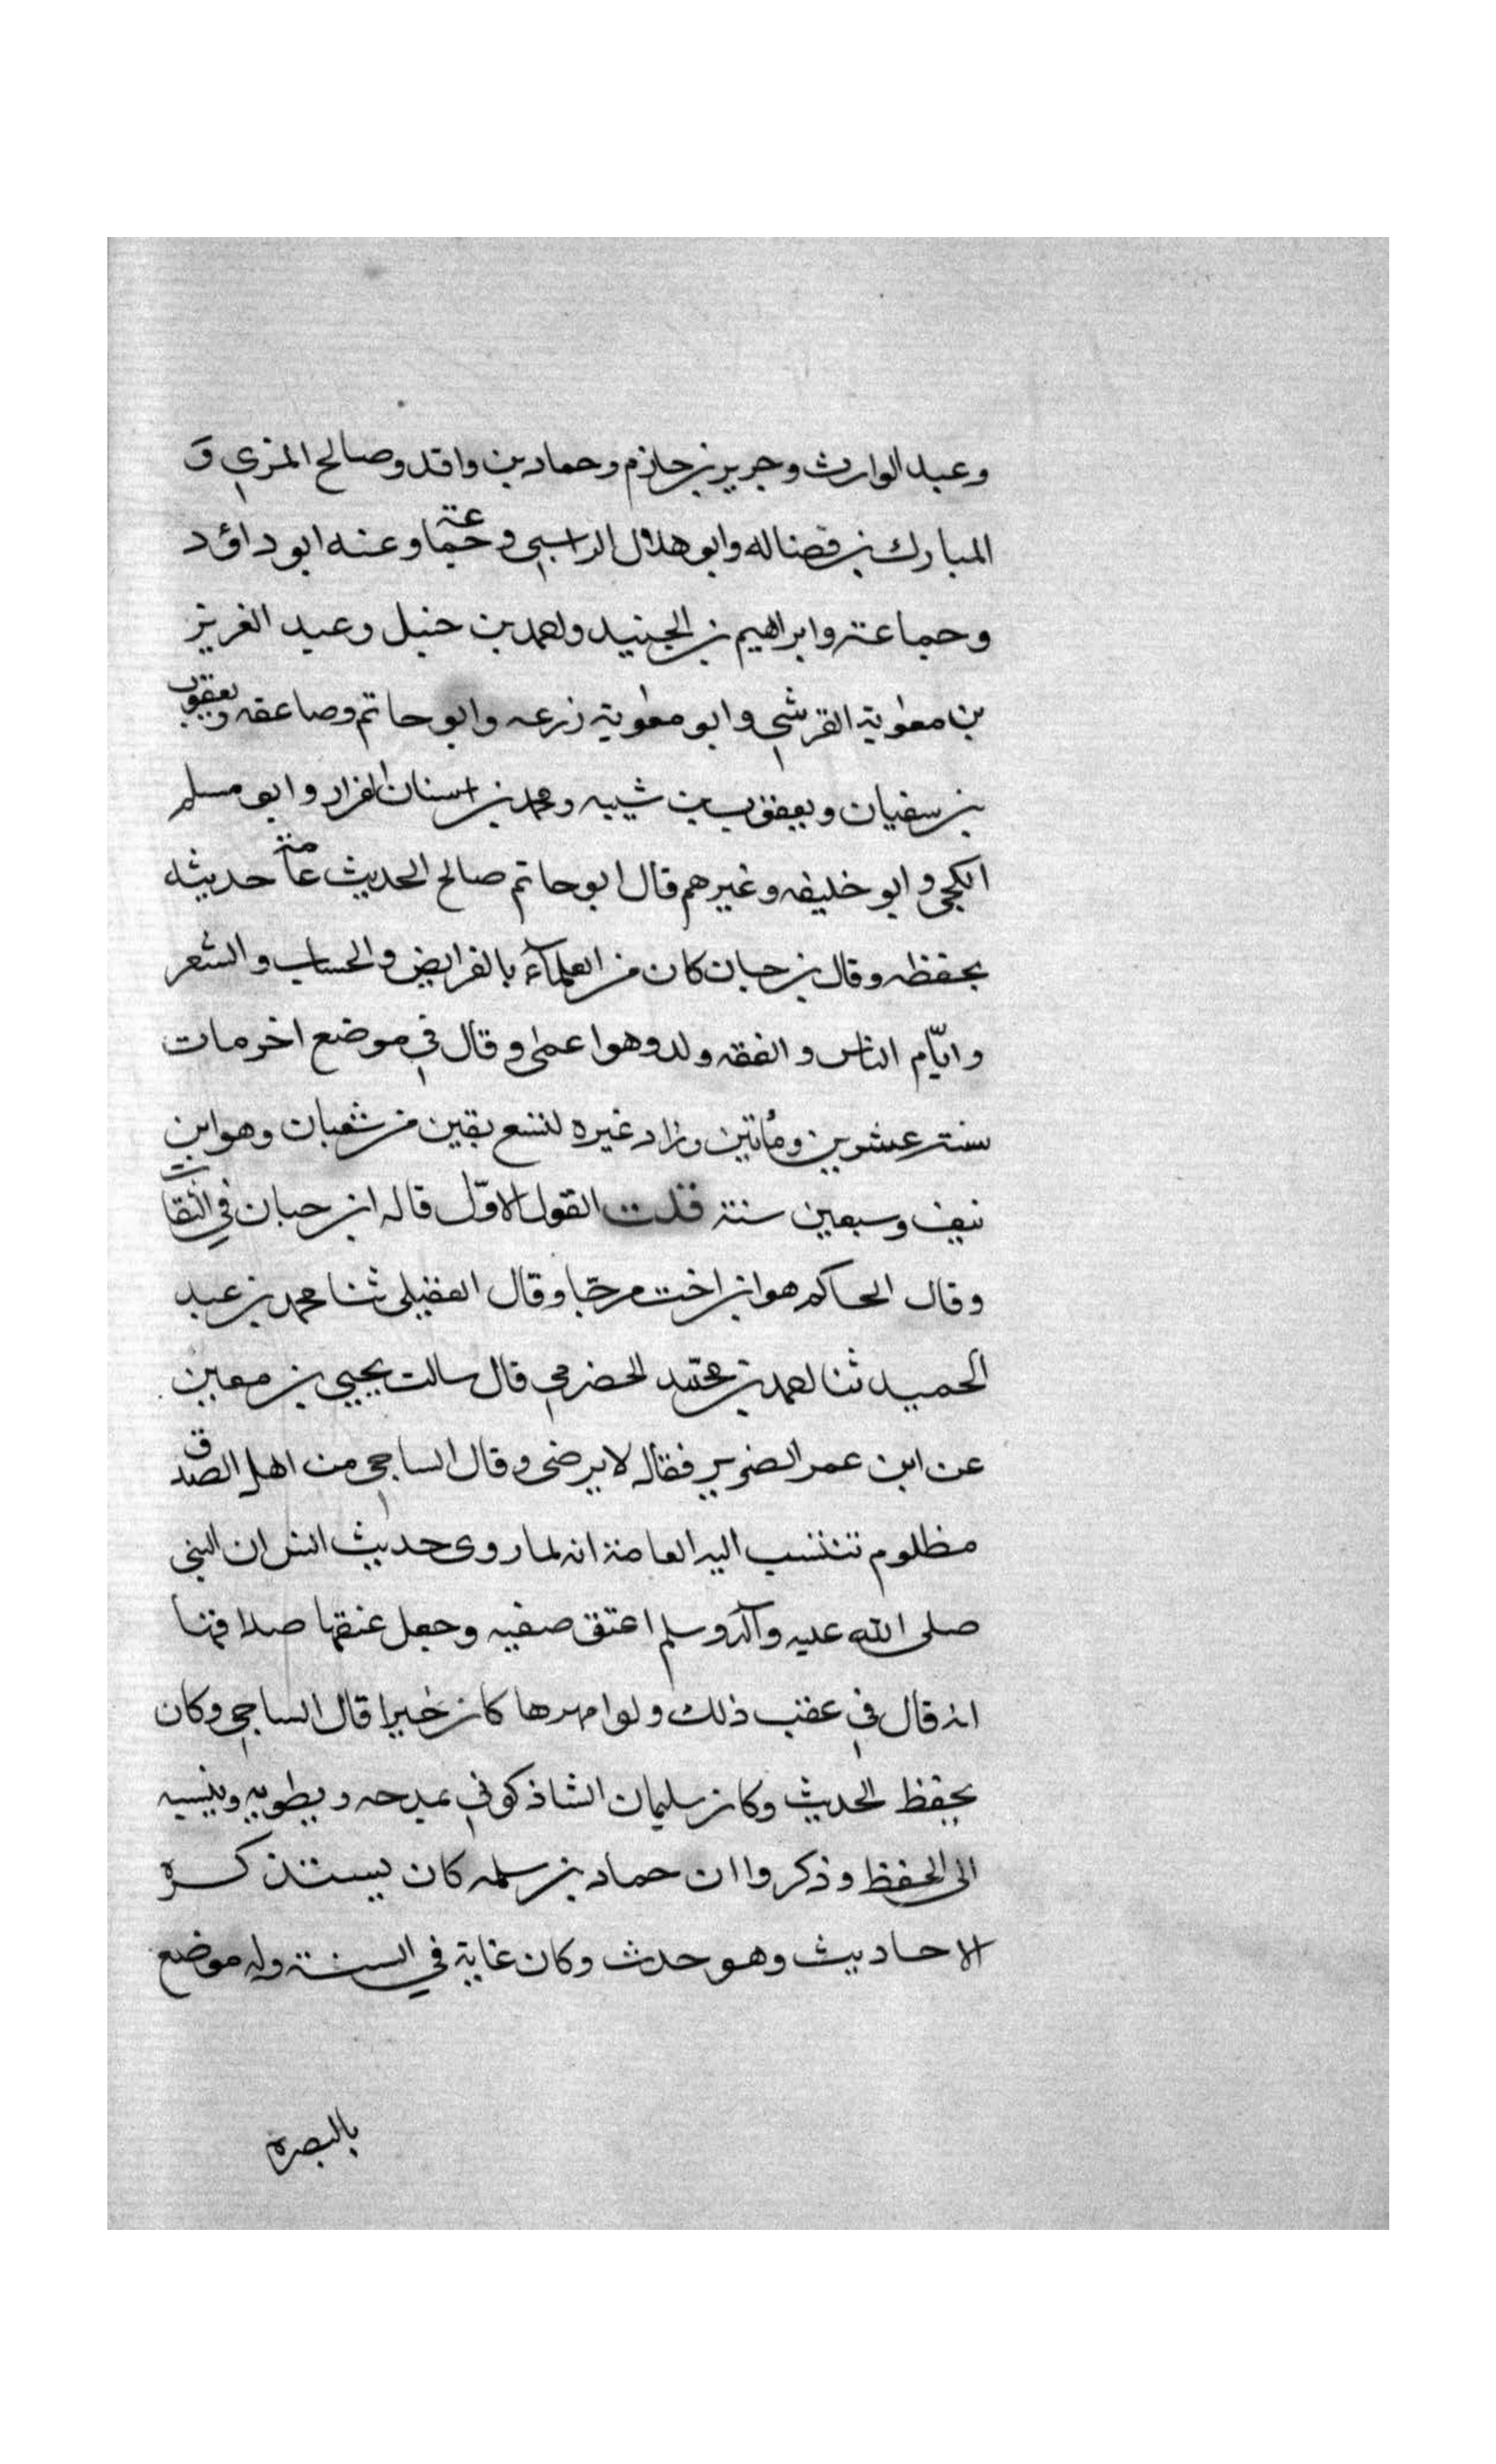 وعبد الوارث وجرير بن حازم وحماد بن واقد وصالح المزي و
المبارك بن فضاله وابو هلال الراسبي وجماعة وعنه ابو داؤد
وجماعة وابراهيم بن الجنيد واحمد بن حنبل وعبد الغريز
بن معوية القرشي وابو معوية زرعه وابو حاتم وصاعقه ويعقوب
بن سفيان ويعقوب بن شيبه ومحمد بن سنان القزار وابو مسلم
الكجي وابو خليفه وغيرهم قال ابو حاتم صالح الحديث عامة حديثه
يحفظه وقال بن حبان كان من العلمآء بالفرايض والحساب والشعر
وايّام الناس والفقه ولد وهو اعمى وقال في موضع اخر مات
سنة عشرين ومأتين وزاد غيره لتسع بقين من شعبان وهو ابن
نيف وسبعين سنة قلت القول الاوّل قاله ابن حبان في الثقات
وقال الحاكم هو ابن اخت مرحّبا وقال العقيلي ثنا محمد بن عبد
الحميد ثنا احمد بن محمد الحضرمي قال سالت يحيي بن معين
عن ابن عمر الضرير فقال لا يرضى وقال الساجي من اهل الصدق
مظلوم تنتسب اليه العامة انه لما روى حديث انس ان النبي
صلى الله عليه وآله وسلم اعتق صفيه وجعل عتقها صداقها
انه قال في عقب ذلك ولو امهرها كان خيرا قال الساجي وكان
يحفظ الحديث وكان سليمان الشاذكوني يمدحه ويطريه وينسبه
الى الحفظ وذكروا ان حماد بن سلمه كان يستذكره
الاحاديث وهو حدث وكان غاية في السنة وله موضع
بالبصره